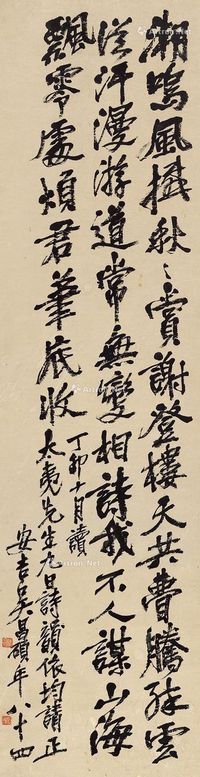 潮鳴風撼秋〻賞謝登樓天共費騰雲
從汗漫游道常無變相詩我不人謀山海
飄零處煩君筆底收
丁卯十月讀
太夷先生九日詩韻依均請正
安吉吳昌碩年八十四